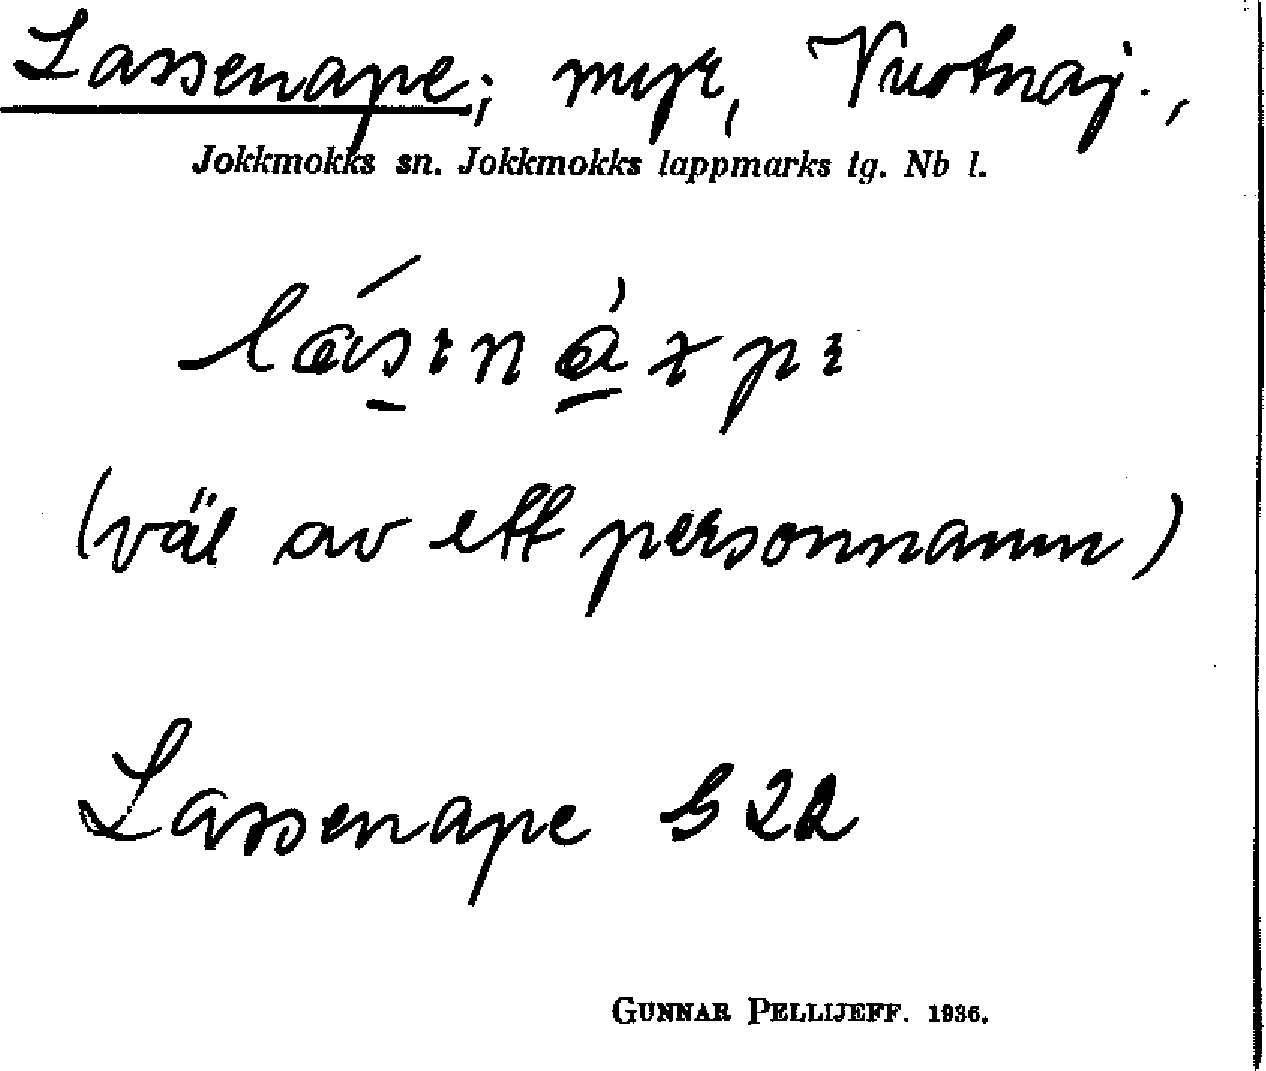 Lassenape; myr, Vuotnaj.,
Jokkmokks sn. Jokkmokks lappmarks tg. Nb l.
(väl av ett personnamn)
Lassenape S 22
GUNNAR PELLIJEFF. 1936.